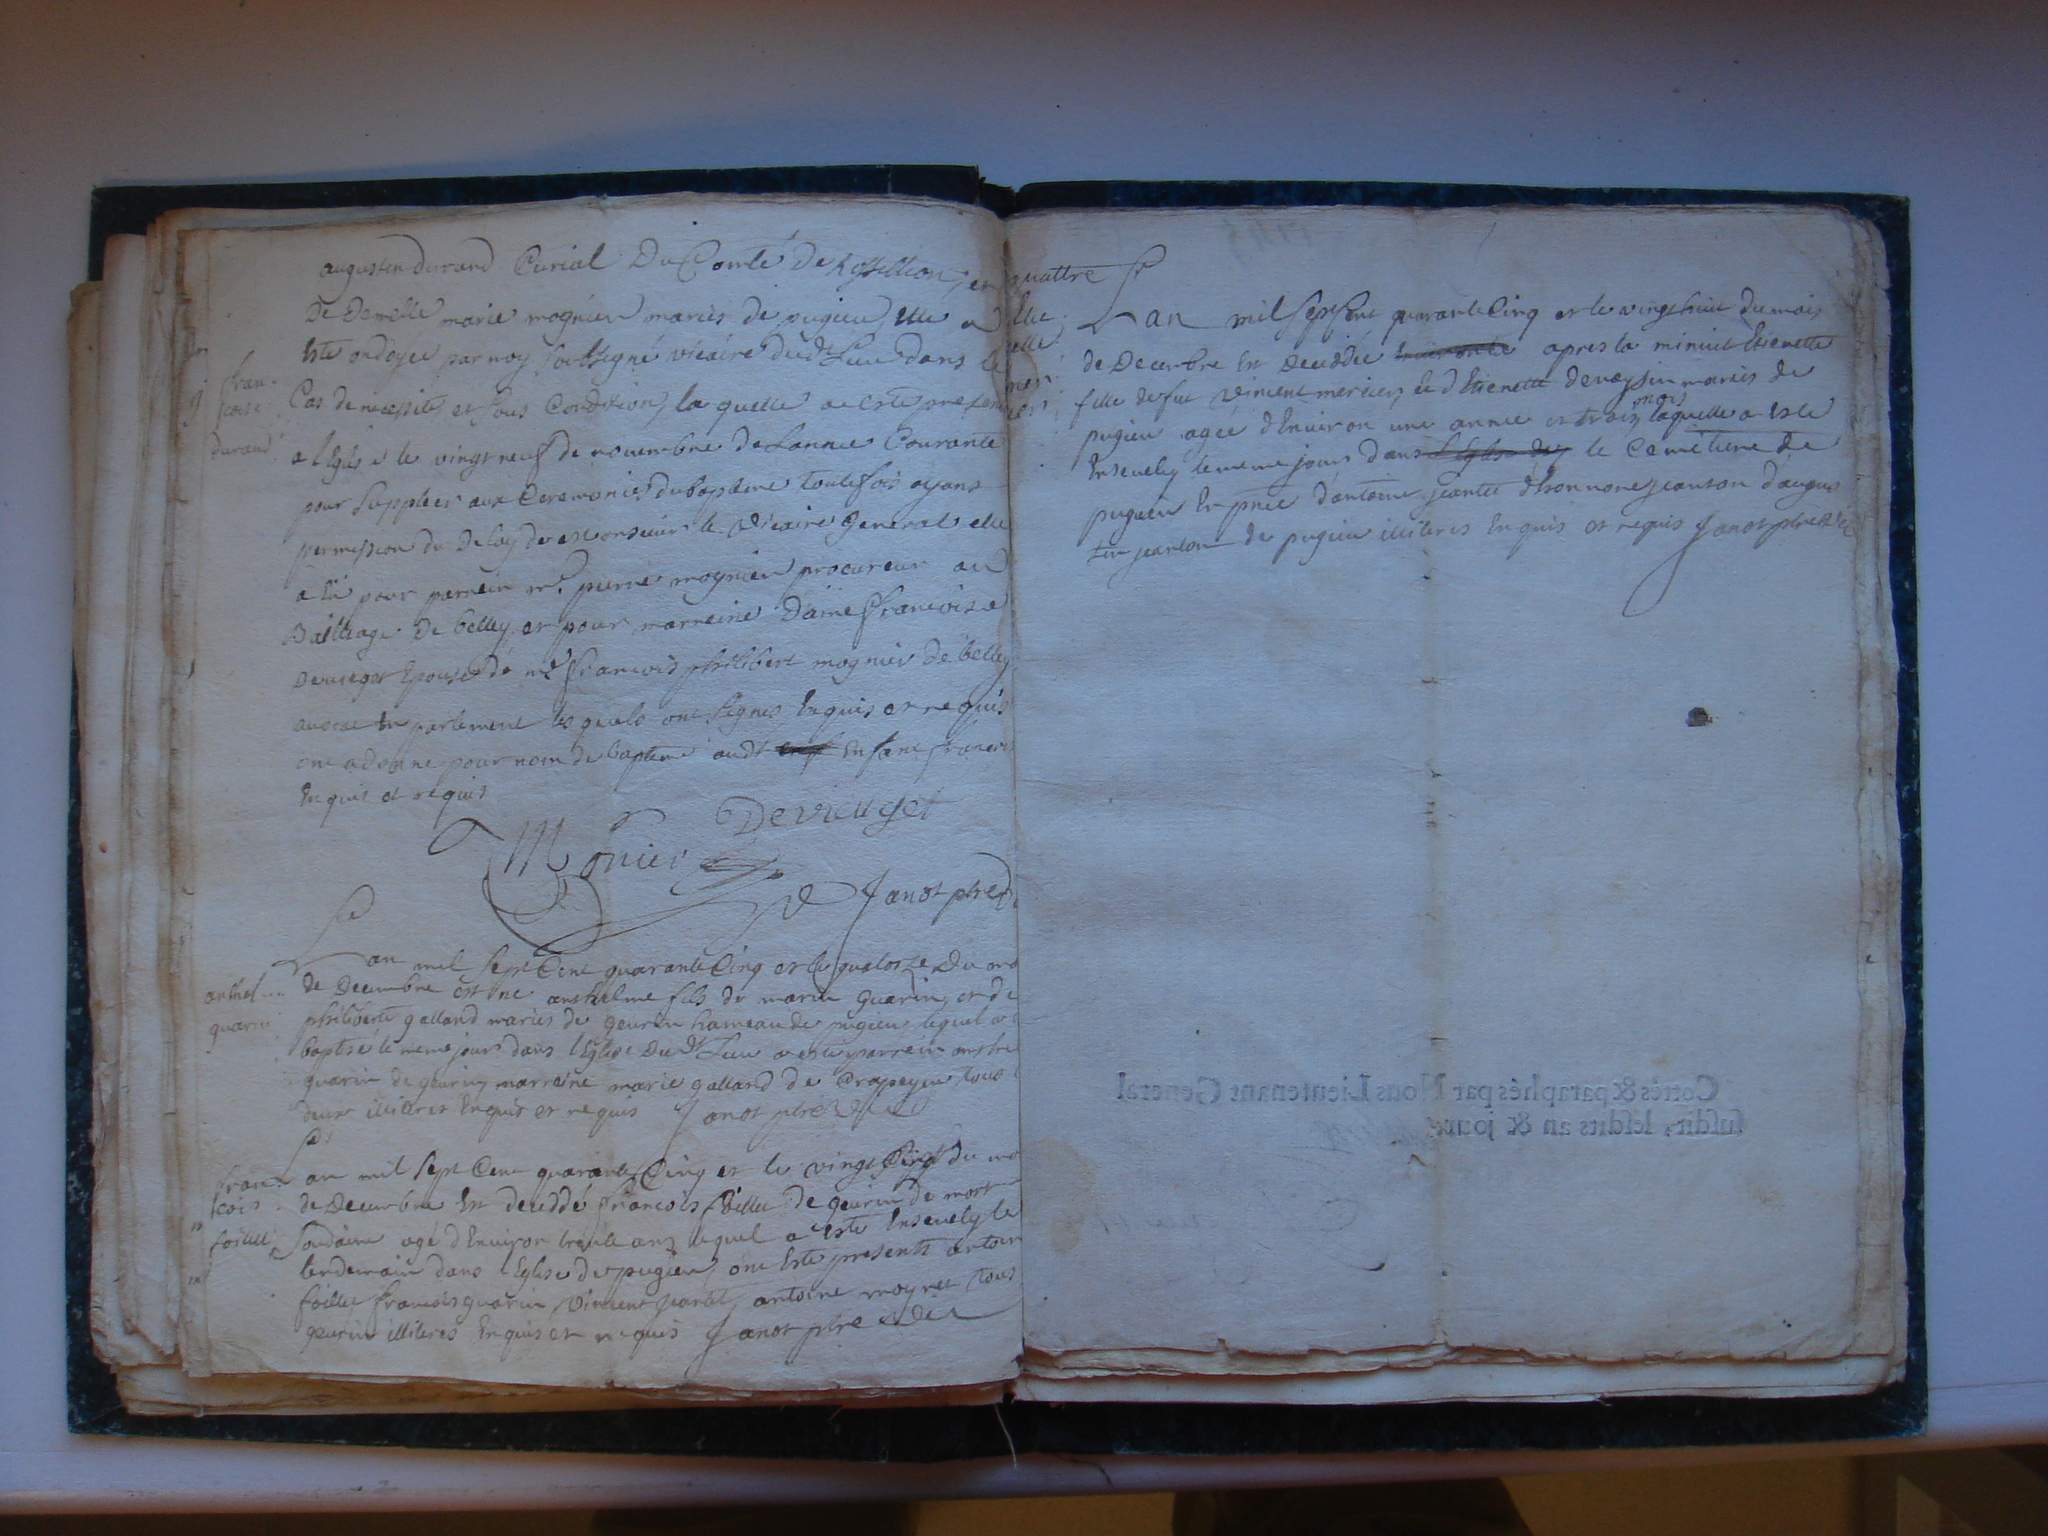 augustin durand Curial Du Comté de Rossillion, et
De Demelle marie mognier mariés de pugieu, elle a
Esté ondoyee par moy soussigné vicaire dudt Lieu dans le
Cas de necessité, et sous Condition, la quelle a esté presen
a l'Eglise le vingt neuf de novembre de Lannee Courante
pour suppleer aux Ceremonies du baptême toutefois ayans
permission du Delay de Monsieur le Vicaire General elle
a eü pour parrein mr. pierre mognier procureur au
Bailliage de belley et pour marreine Dame francoise
Devieuget Epouse de mr francois philibert mognier de belley
avocat En parlement les quels ont signés Enquis et requis
ont a donne pour nom de bapteme audt Enfant francois
Enquis et requis
fran-
coise
durand
Devieuget
Monier
Janot ptre
Lan mil sept Cent quarante Cinq et le quatorze Du mo
de Decembre est ne anthelme fils de marin guarin, et de
philiberte galland mariés de geurin hameau de pugieu lequel a
baptise le meme jour dans l'Eglise Du dt Lieu a esté parrein anthe
guarin de geurin marreine marie galland de Crapeyeu tous
deux illiteres Enquis et requis Janot ptre Vic
anthel
guarin
Lan mil sept Cent quarante Cinq et le vingt Cinq du mo
de Decembre Est deceddé francois foillet de geurin de mort
Soudaine agé d'Environ trente ans lequel a esté Ensevely le
lendemain dans l'Eglise de pugieu, ont Esté presents antoin
foillet francois guarin, Vincent jantet, antoine moynet tous
geurin illiteres Enquis et requis Janot ptre Vic
fran-
cois
foillet
quattre
Lan mil sept Cent quarante Cinq et le vingt huit du mois
de Decembre Est Deceddée apres la minuit Etienette
fille de feu Vincent mercier, et d'Etienette devoysin mariés de
pugieu agée d'Environ une année et trois mois laquelle a esté
Ensevely le meme jour dans l'Eglise de le Cemetiere de
pugieu En pnce d'antoine jantet d'honnoré jeanton d'augus
tin jeanton de pugieu illiteres Enquis et requis Janot ptre Vic
Cottés & paraphés par Nous Lieutenant General
susdit, lesdits an & jour